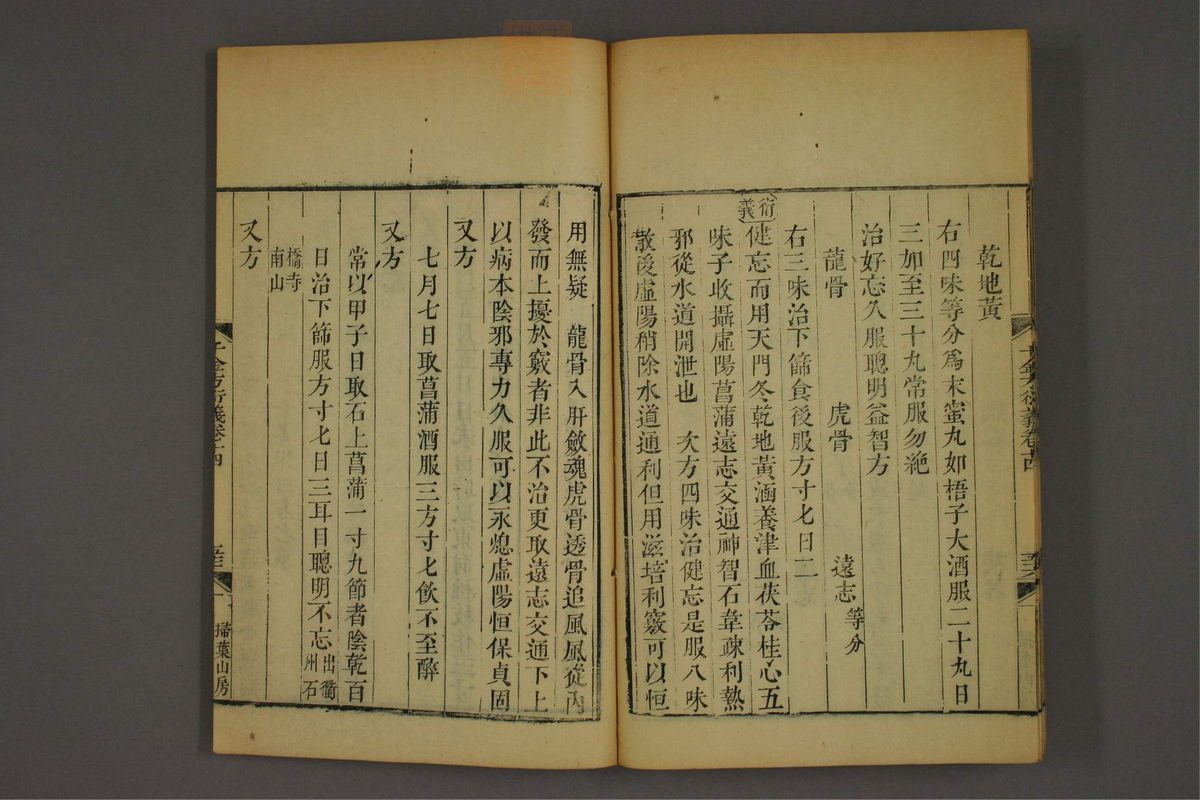 乾地黃
右四味等分爲末蜜丸如梧子大酒服二十丸日
三加至三十丸常服勿絶
治好忘久服聰明益智方
龍骨　虎骨　遠志等分
右三味治下篩食後服方寸匕日二
衍義健忘而用天門冬乾地黃涵養津血茯苓桂心五
味子收攝虛陽菖蒲遠志交通神智石韋疎利熱
邪從水道開泄也　次方四味治健忘是服八味
散後虛陽稍除水道通利但用滋培利竅可以恒
用無疑　龍骨入肝斂魂虎骨透骨追風風從內
發而上擾於竅者非此不治更取遠志交通下上
以病本陰邪專力久服可以永熄虛陽恒保貞固
又方
七月七日取菖蒲酒服三方寸匕飲不至醉
又方
常以甲子日取石上菖蒲一寸九節者陰乾百
日治下篩服方寸匕日三耳目聰明不忘出衢州石
橋寺南山
又方
千金方衍義卷十四
掃葉山房